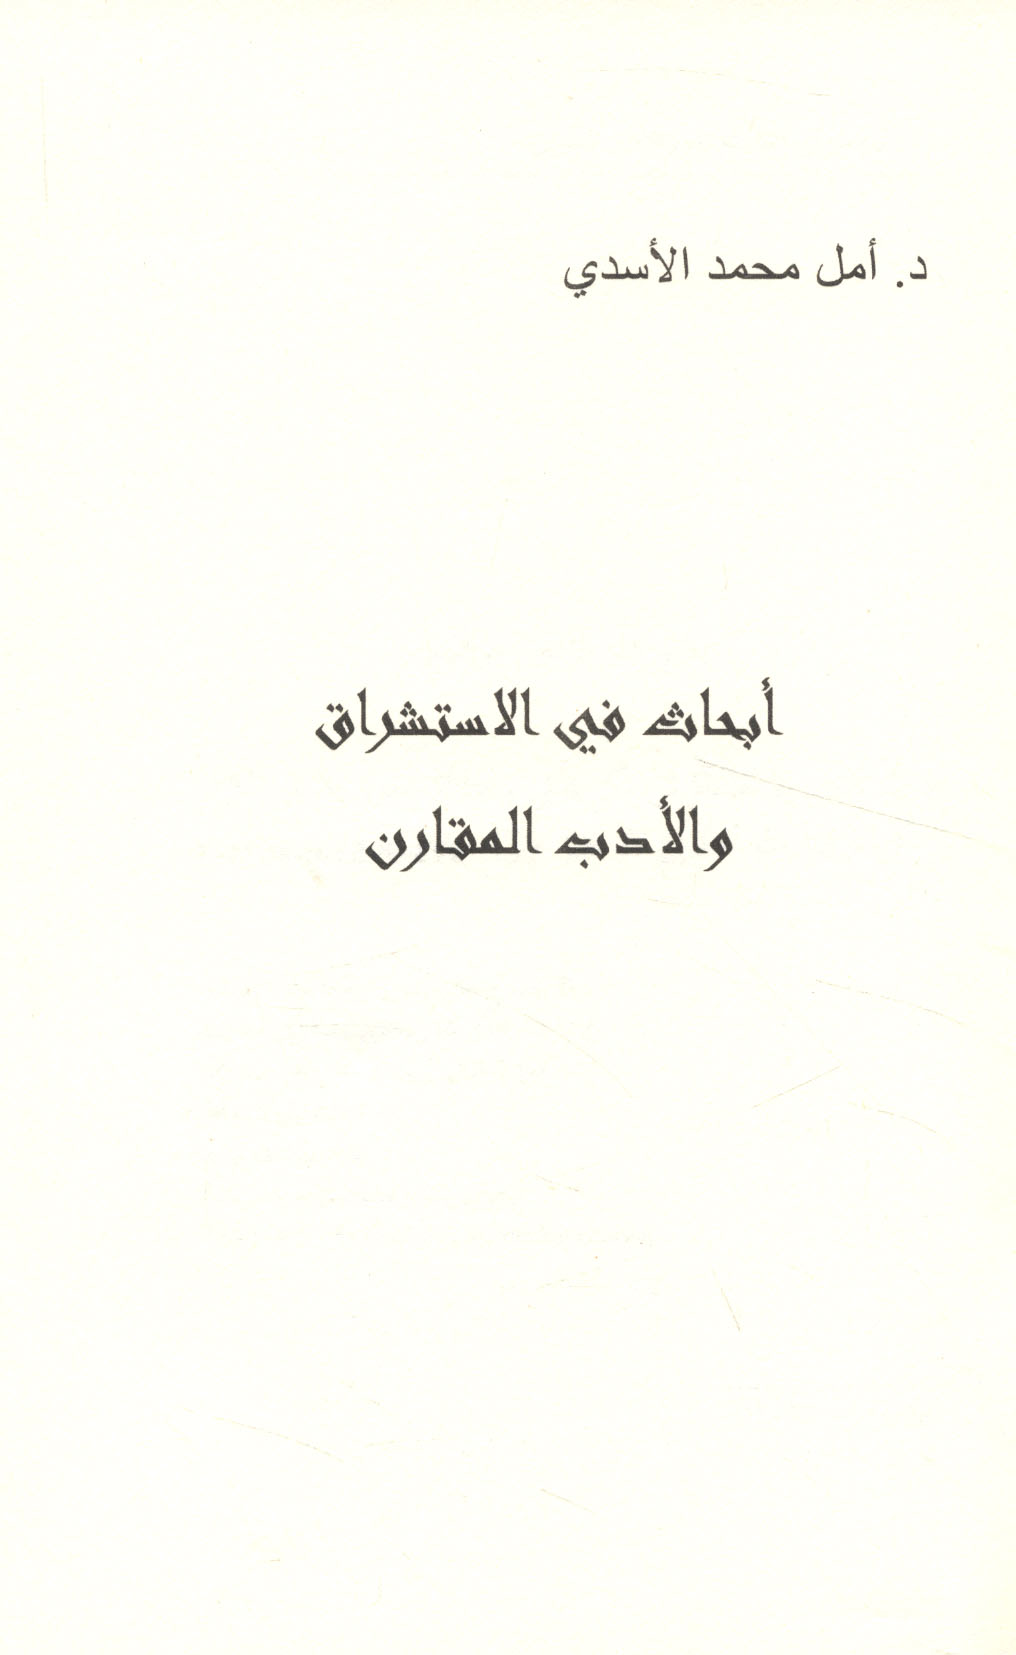 د. أمل محمد الأسدي
أبحاث في الاستشراق
والأدب المقارن